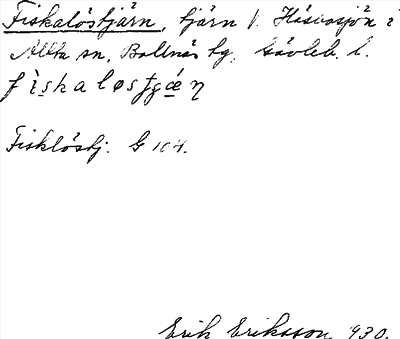 Fiskalöstjärn, tjärn f. Häsvasjön i
Alfta sn, Bollnäs tg, Gävleb. l.
fiskaløsʃgæ̨ŋ
Fisklöstj. G 104.
Erik Eriksson 1930.